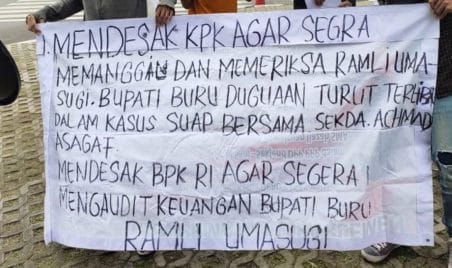 1. MENDESAK KPK AGAR SEGRA
MEMANGGAL DAN MEMERIKSA RAMLI UMA-
SUGI. BUPATI BURU DUGUAAN TURUT TERLIBA
DALAM KASUS SUAP BERSAMA SEKDA. ACHMAD
ASAGAF.
MENDESAK BPK RI AGAR SEGERA
MENGAUDIT KEUANGAN BUPATI BURU
RAMLI UMASUGI